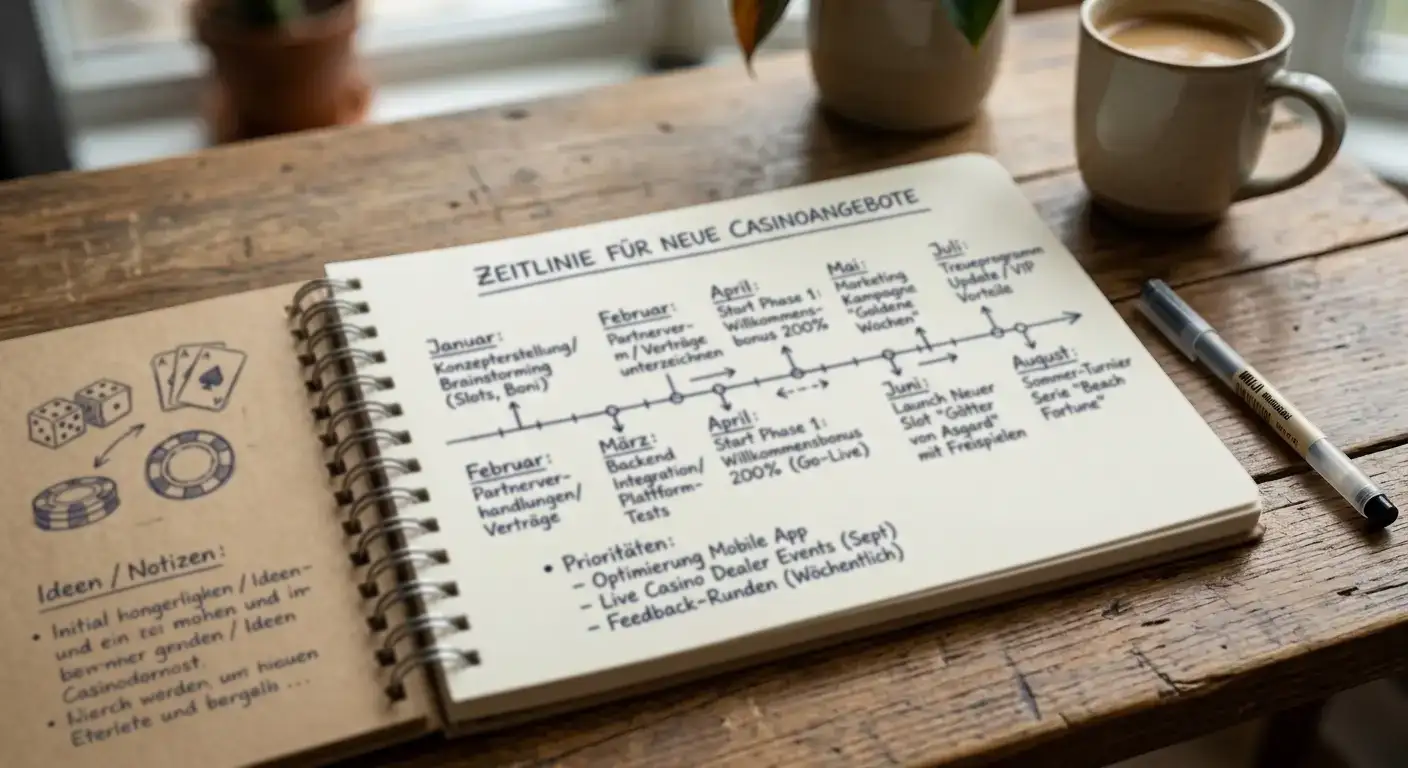 ZEITLINIE FÜR NEUE CASINOANGEBOTE
Januar:
Konzepterstellung/
Brainstorming
(Slots, Boni)
Februar:
Partnerver-
m/Verträge
unterzeichnen
April:
Start Phase 1:
Willkommens-
bonus 200%
Mai:
Marketing
Kampagne
"Goldene
Wochen"
Juli:
Treueprogramm
Update/VIP
Vorteile
Februar:
Partnerver-
handlungen/
Verträge
März:
Backend
Integration/
Plattform-
Tests
April:
Start Phase 1:
Willkommensbonus
200% (Go-Live)
Juni:
Launch Neuer
Slot "Götter
von Asgard"
mit Freispielen
August:
Sommer-Turnier
Serie "Beach
Fortune"
• Prioritäten:
– Optimierung Mobile App
– Live Casino Dealer Events (Sept)
– Feedback-Runden (Wöchentlich)
Ideen / Notizen:
• Initial hongerligken / Ideen-
und ein zei mohen und im
ben-nner genden / Ideen
Casinodornost.
• Nierch werden, um hieuen
Eterlete und bergelb ...
MUJI